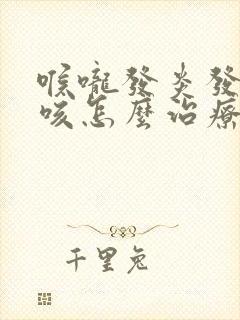 喉嚨發炎發
咳怎麼治療
千里兔